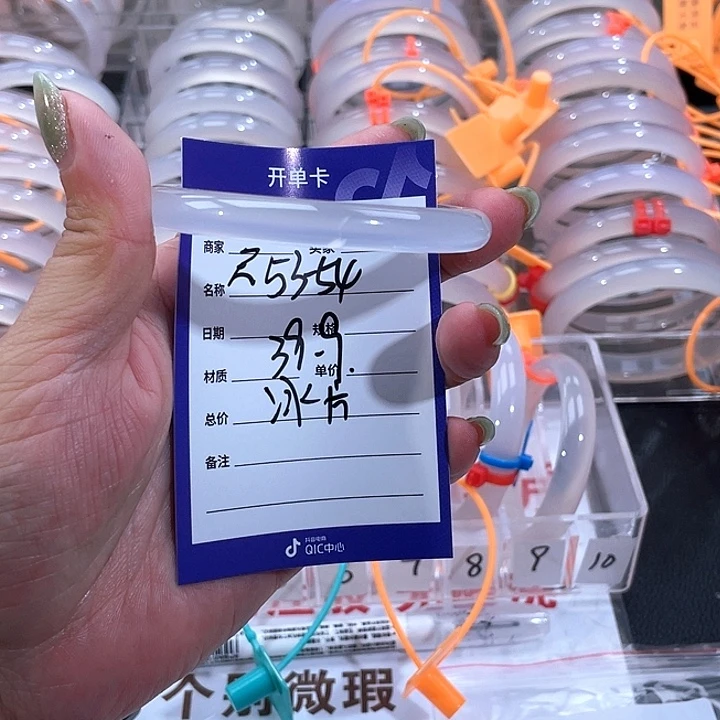 开单卡
商家
名称
日期 规格
39.9.
材质 单价
冰卡
总价
备注
抖音电商
QIC中心
7 8 9 10
个别微瑕